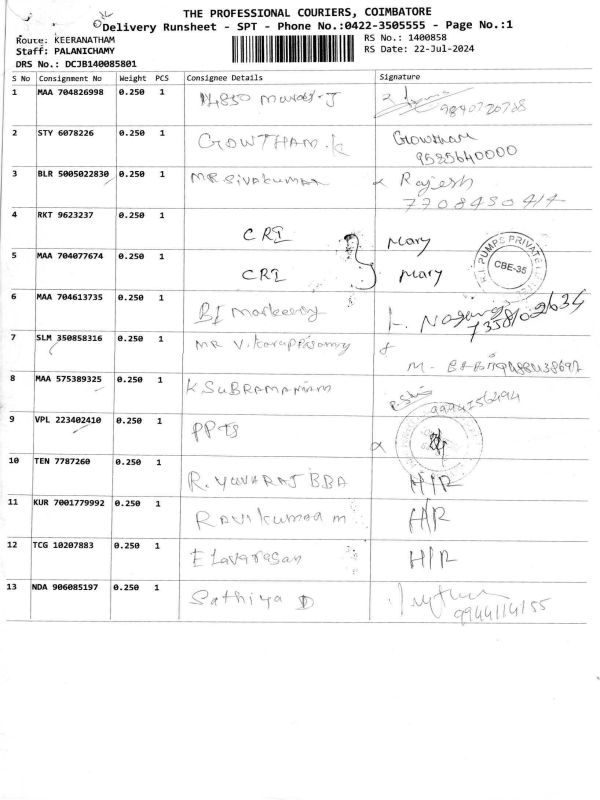 THE PROFESSIONAL COURIERS, COIMBATORE
Delivery Runsheet - SPT - Phone No.:0422-3505555 - Page No.:1
Route: KEERANATHAM
RS No.: 1400858
Staff: PALANICHAMY
RS Date: 22-Jul-2024
DRS No.: DCJB140085801
S No Consignment No Weight PCS Consignee Details Signature
1 MAA 704826998 0.250 1
2 STY 6078226 0.250 1 GOWTHAM.K Gowtham
9525640000
3 BLR 5005022830 0.250 1 MR SIVAKUMAR Rajesh
7708430414
4 RKT 9623237 0.250 1 CRI Mary
5 MAA 704077674 0.250 1 CRI Mary
PUMPS PRIVATE
CBE-35
6 MAA 704613735 0.250 1 BI
7 SLM 350858316 0.250 1 MR V.
8 MAA 575389325 0.250 1 K SUBRAMANIAM
9 VPL 223402410 0.250 1 PPTS
10 TEN 7787260 0.250 1 R. YUVARAJ BBA H/R
11 KUR 7001779992 0.250 1 RAVIKUMAR M H/R
12 TCG 10207883 0.250 1 Elavarasan H/R
13 NDA 906085197 0.250 1 Sathiya D
9944114155